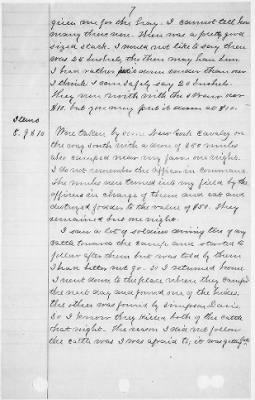 7
given me for the Gray. I cannot tell how
many there were. There was a pretty good
sized stack. I would not like to say there
was 25 bushels, tho there may have been
I had rather put it down under than over
I think I can safely say 20 bushels.
They were worth with the straw over
$10. but you may put it down at $10.
Items
8. 9 & 10 Were taken by some New York Cavalry on
the way south with a drove of 250 mules
who camped near my farm one night.
I do not remember the officer in command.
The mules were turned into my field by the
officers in charge of them and eat and
destroyed fodder to the value of $50. They
remained but one night.
I saw a lot of soldiers driving two of my
cattle towards the camp and started to
follow after them but was told by them
I had better not go. So I returned home
I went down to the place where they camped
the next day and found one of the hides.
the other was found by Simpson Davis
So I know they killed both of the cattle
that night. The reason I did not follow
the cattle was I was afraid to; it was